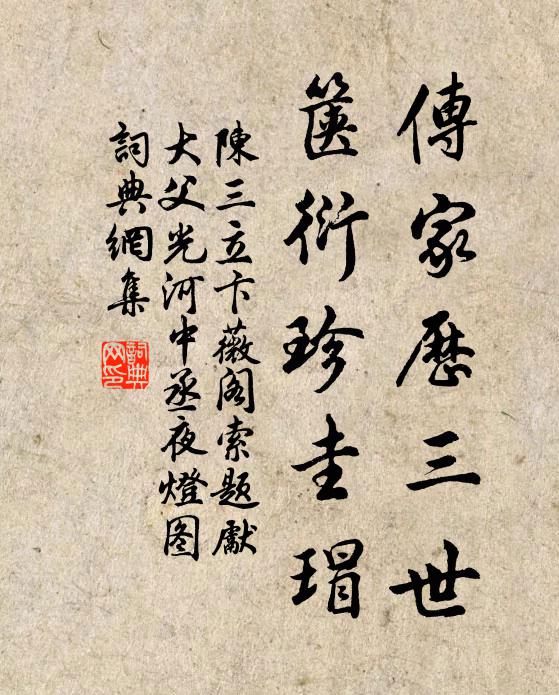 傳家歷三世
篋衍珍圭瑁
陳三立卞薇閣索題獻
大父光河中丞夜燈图
詞典網集
詞典网印